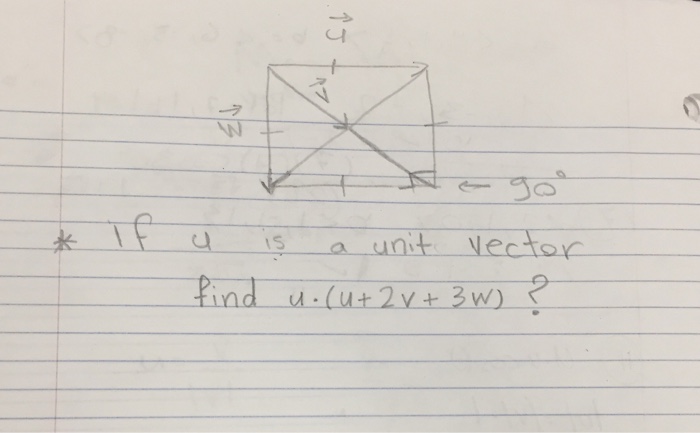 u⃗
v⃗
w⃗
← 90°
* If u is a unit vector
find u·(u+2v+3w) ?